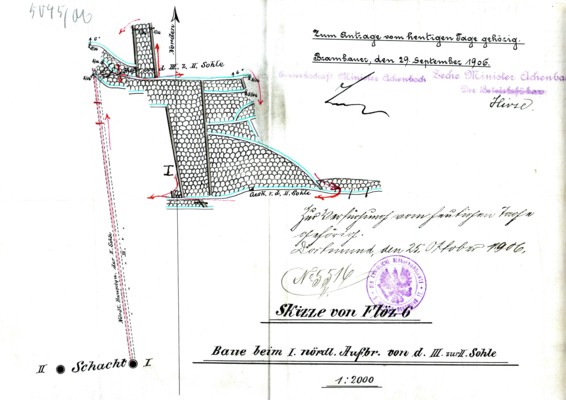 5045/06
Zum Antrage vom heutigen Tage gehörig.
Brambauer, den 29. September 1906.
Gewerkschaft Minister Achenbach Zeche Minister Achenbach
Der Betriebsführer
Norden
d. III. z. II. Sohle
I
Zur Verfügung vom heutigen Tage
gehörig.
Dortmund, den 25. Oktober 1906.
No 5516
Skizze von Flöz 6
Baue beim I. nördl. Aufbr. von d. III. zur II. Sohle
1:2000
II Schacht I